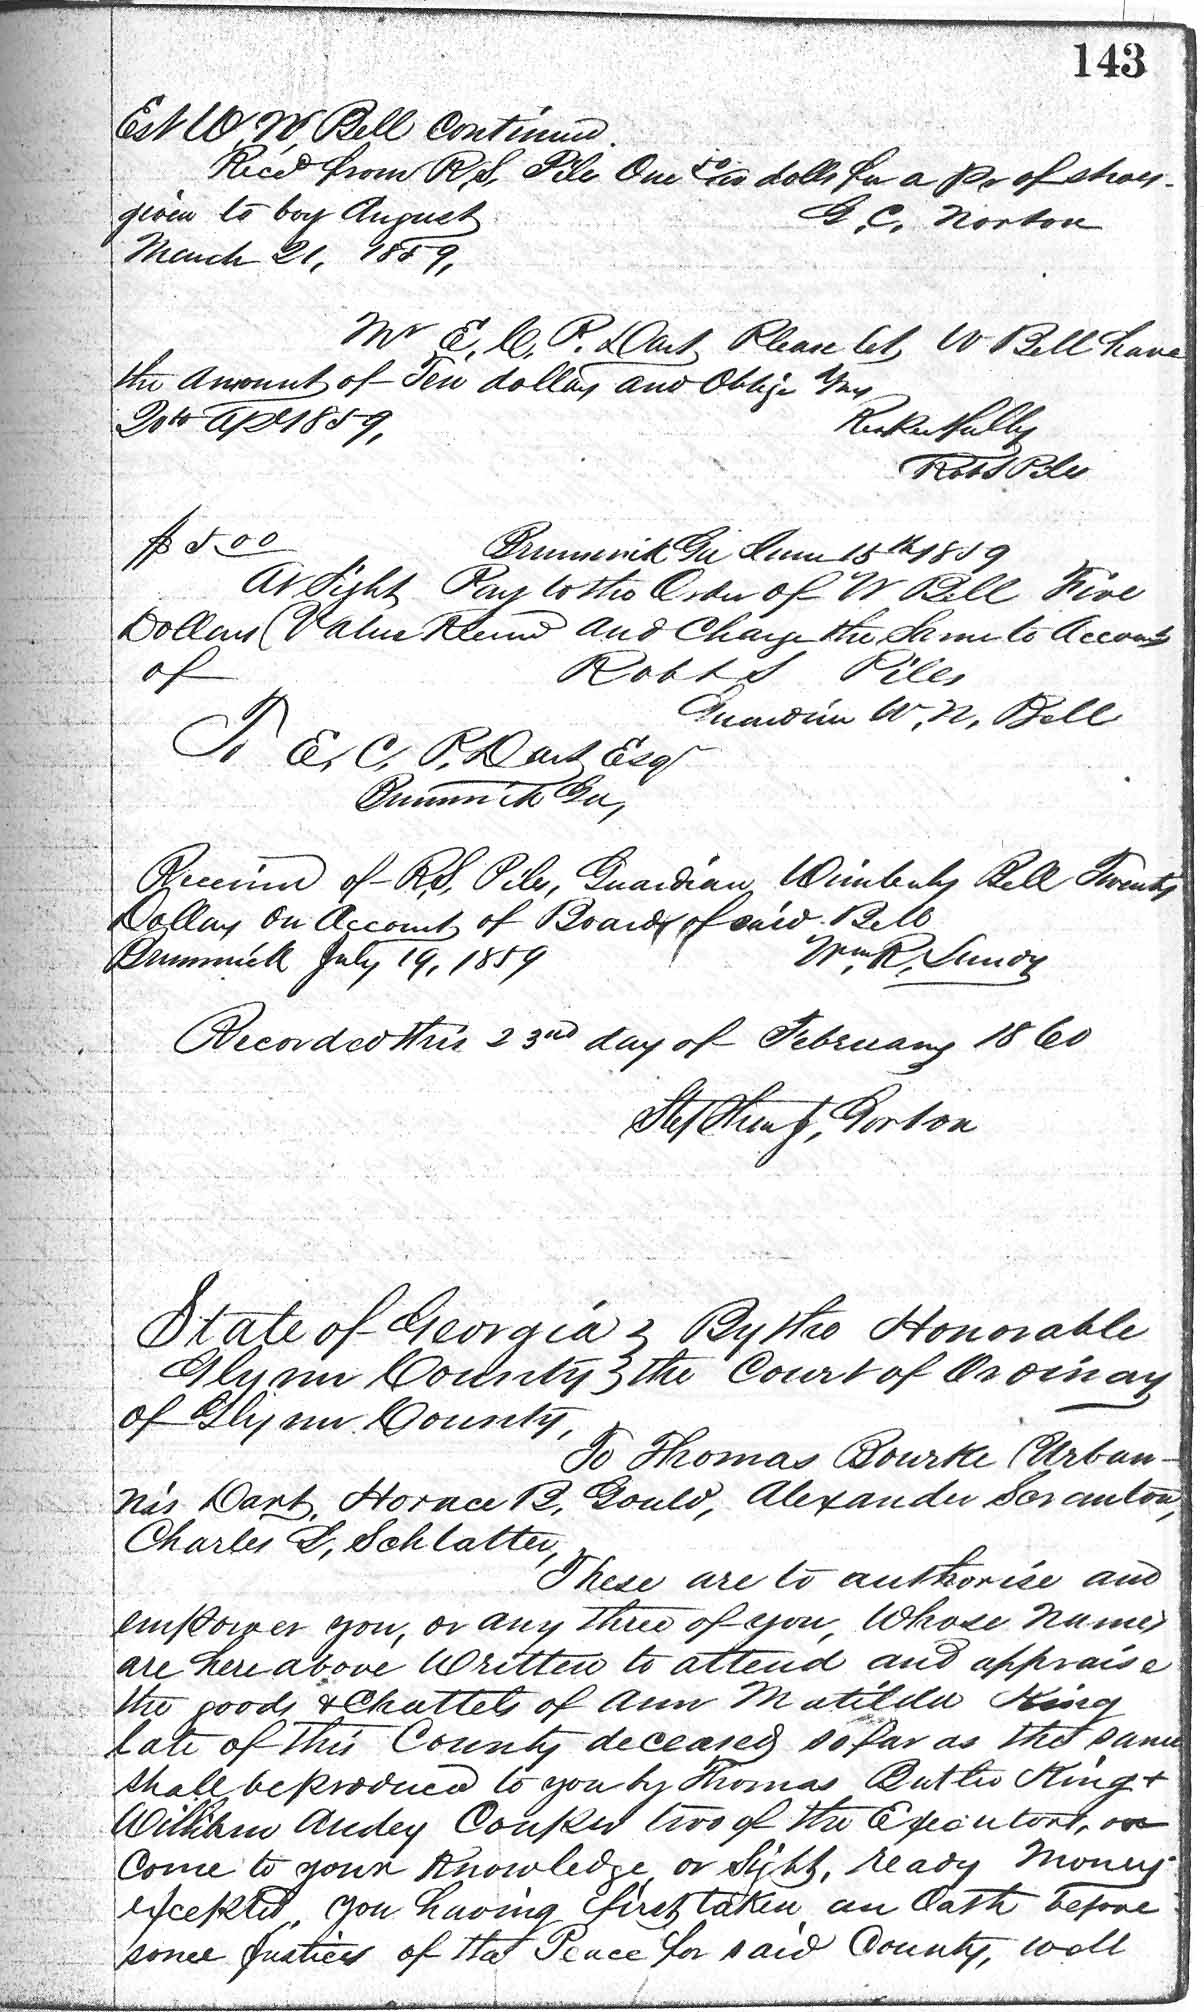 143
Est W. W. Bell Continued.
Recd from R, S, Piles One 50/100 dolls for a Pr of shoes.
given to boy August
G. C. Norton
March 21, 1859,
Mr E. C. P. Dart Please let W Bell have
the Amount of Ten dollars and Oblige Yrs
20th Apl 1859,
Respectfully
Robt S Piles
$5.00
Brunswick Ga June 15th 1859
At Sight Pay to the Order of W Bell Five
Dollars (Value Recvd and Charge the Same to Account
of
Robt S Piles
Guardian W. N. Bell
To E, C, P. Dart Esqr
Brunswick Ga,
Received of R S, Piles, Guardian Wimberly Bell Twenty
Dollars on Account of Board of said Bell
Brunswick July 19, 1859
Wm R, Lundy
Recorded this 23nd day of February 1860
Stephen J, Gorton
State of Georgia } By the Honorable
Glynn County } the Court of Ordinary
of Glynn County,
To Thomas Bourke Urban-
nis Dart, Horace B, Gould, Alexander Scranton,
Charles L, Schlatter,
These are to authorise and
empower you, or any three of you, Whose Names
are here above Written to attend and appraise
the goods & Chattels of Ann Matilda King
late of this County deceased so far as the same
shall be produced to you by Thomas Butler King &
William Audley Couper two of the Executors, or
Come to your Knowledge or Sight, ready Money
excepted, You having first taken an Oath before
some Justices of the Peace for said County, well